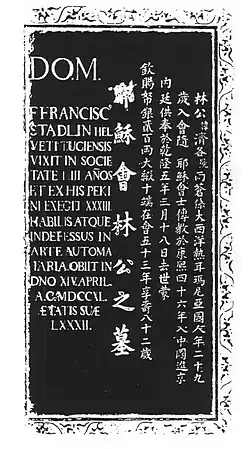 D.O.M.
F FRANCISC⁹
STADLIN HEL
VETI TUGIENSIS
VIXIT IN SOCIE
TATE LIII AÑOS
ET EX HIS PEKI
NI EXEGIT XXXIII.
HABILIS ATQUE
INDEFESSUS IN
ARTE AUTOMA
TARIA. OBIIT IN
DNO XIV. APRIL.
A.C. MDCCXL.
ÆTATIS SUÆ
LXXXII.
耶穌會林公之墓
林公諱濟各號雨蒼係大西洋熱耳瑪尼亞國人年二十九
歲入會隨 耶穌會士傳教於康熙四十六年入中國進京
內廷供奉於乾隆五年三月十八日去世蒙
欽賜帑銀貳百兩大緞十端在會五十三年享壽八十二歲